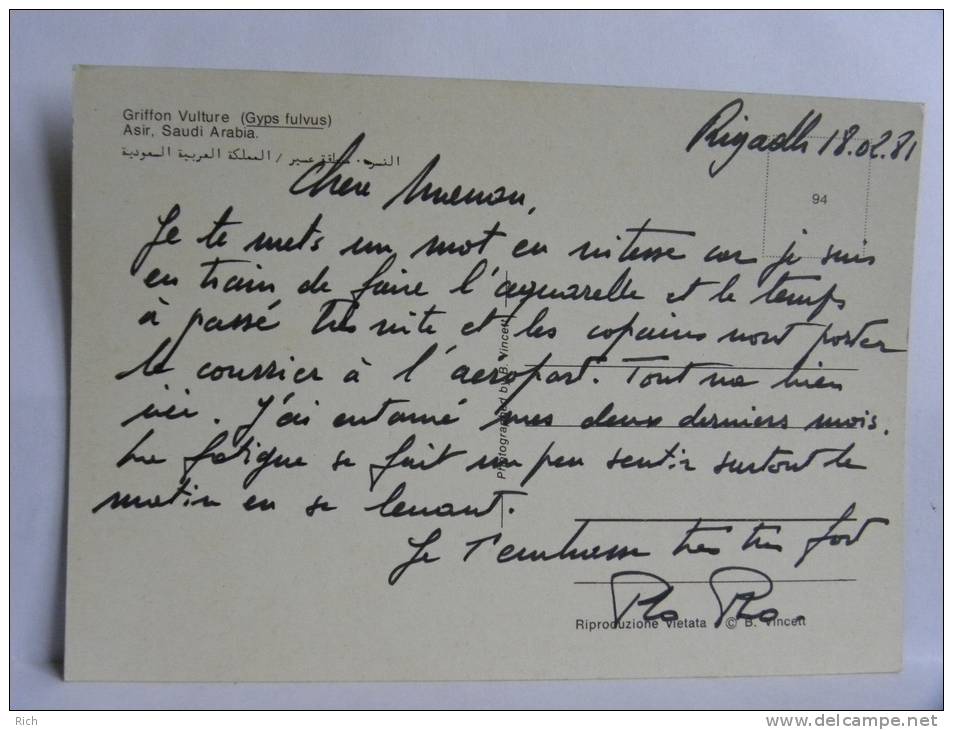 Griffon Vulture (Gyps fulvus)
Asir, Saudi Arabia.
النسر. منطقة عسير / المملكة العربية السعودية
Riyadh 18.02.81
94
Chère
Je te mets un mot en vitesse car je suis
en train de faire l'aquarelle et le temps
à passé très vite et les copains vont porter
le courrier à l'aéroport. Tout va bien
ici. J'ai entamé mes deux derniers mois.
La fatigue se fait un peu sentir surtout le
matin en se levant.
Je t'embrasse très très fort
Photographed by B. Vincett
Riproduzione vietata © B. Vincett
Rich
www.delcampe.net